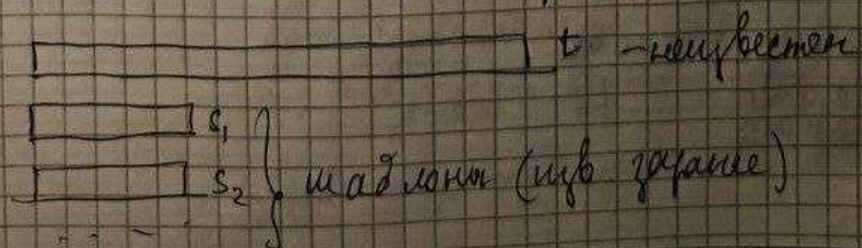 t - неизвестен
S₁
S₂
шаблоны (изв заранее)